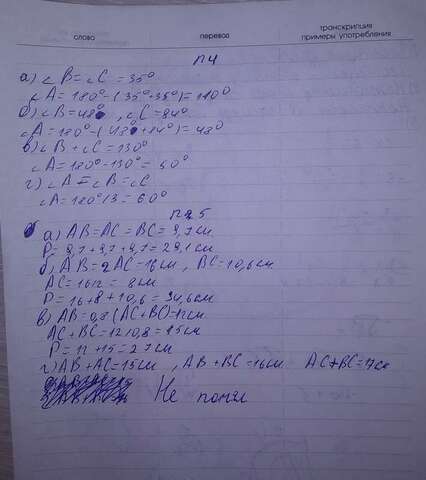 слово перевод транскрипция
примеры употребления
п4
а) ∠B=∠C=35°
∠A=180°-(35°+35°)=110°
б) ∠B=48°, ∠C=84°
∠A=180°-(48°+84°)=48°
в) ∠B+∠C=130°
∠A=180°-130°=50°
г) ∠A=∠B=∠C
∠A=180°/3=60°
5
а) AB=AC=BC=9,7см
P=9,7+9,7+9,7=29,1см
б) AB=2AC=16см, BC=10,6см
AC=16/2=8см
P=16+8+10,6=34,6см
в) AB=0,8(AC+BC)=12см
AC+BC=12/0,8=15см
P=12+15=27см
г) AB+AC=15см, AB+BC=16см AC+BC=17см
Не понял